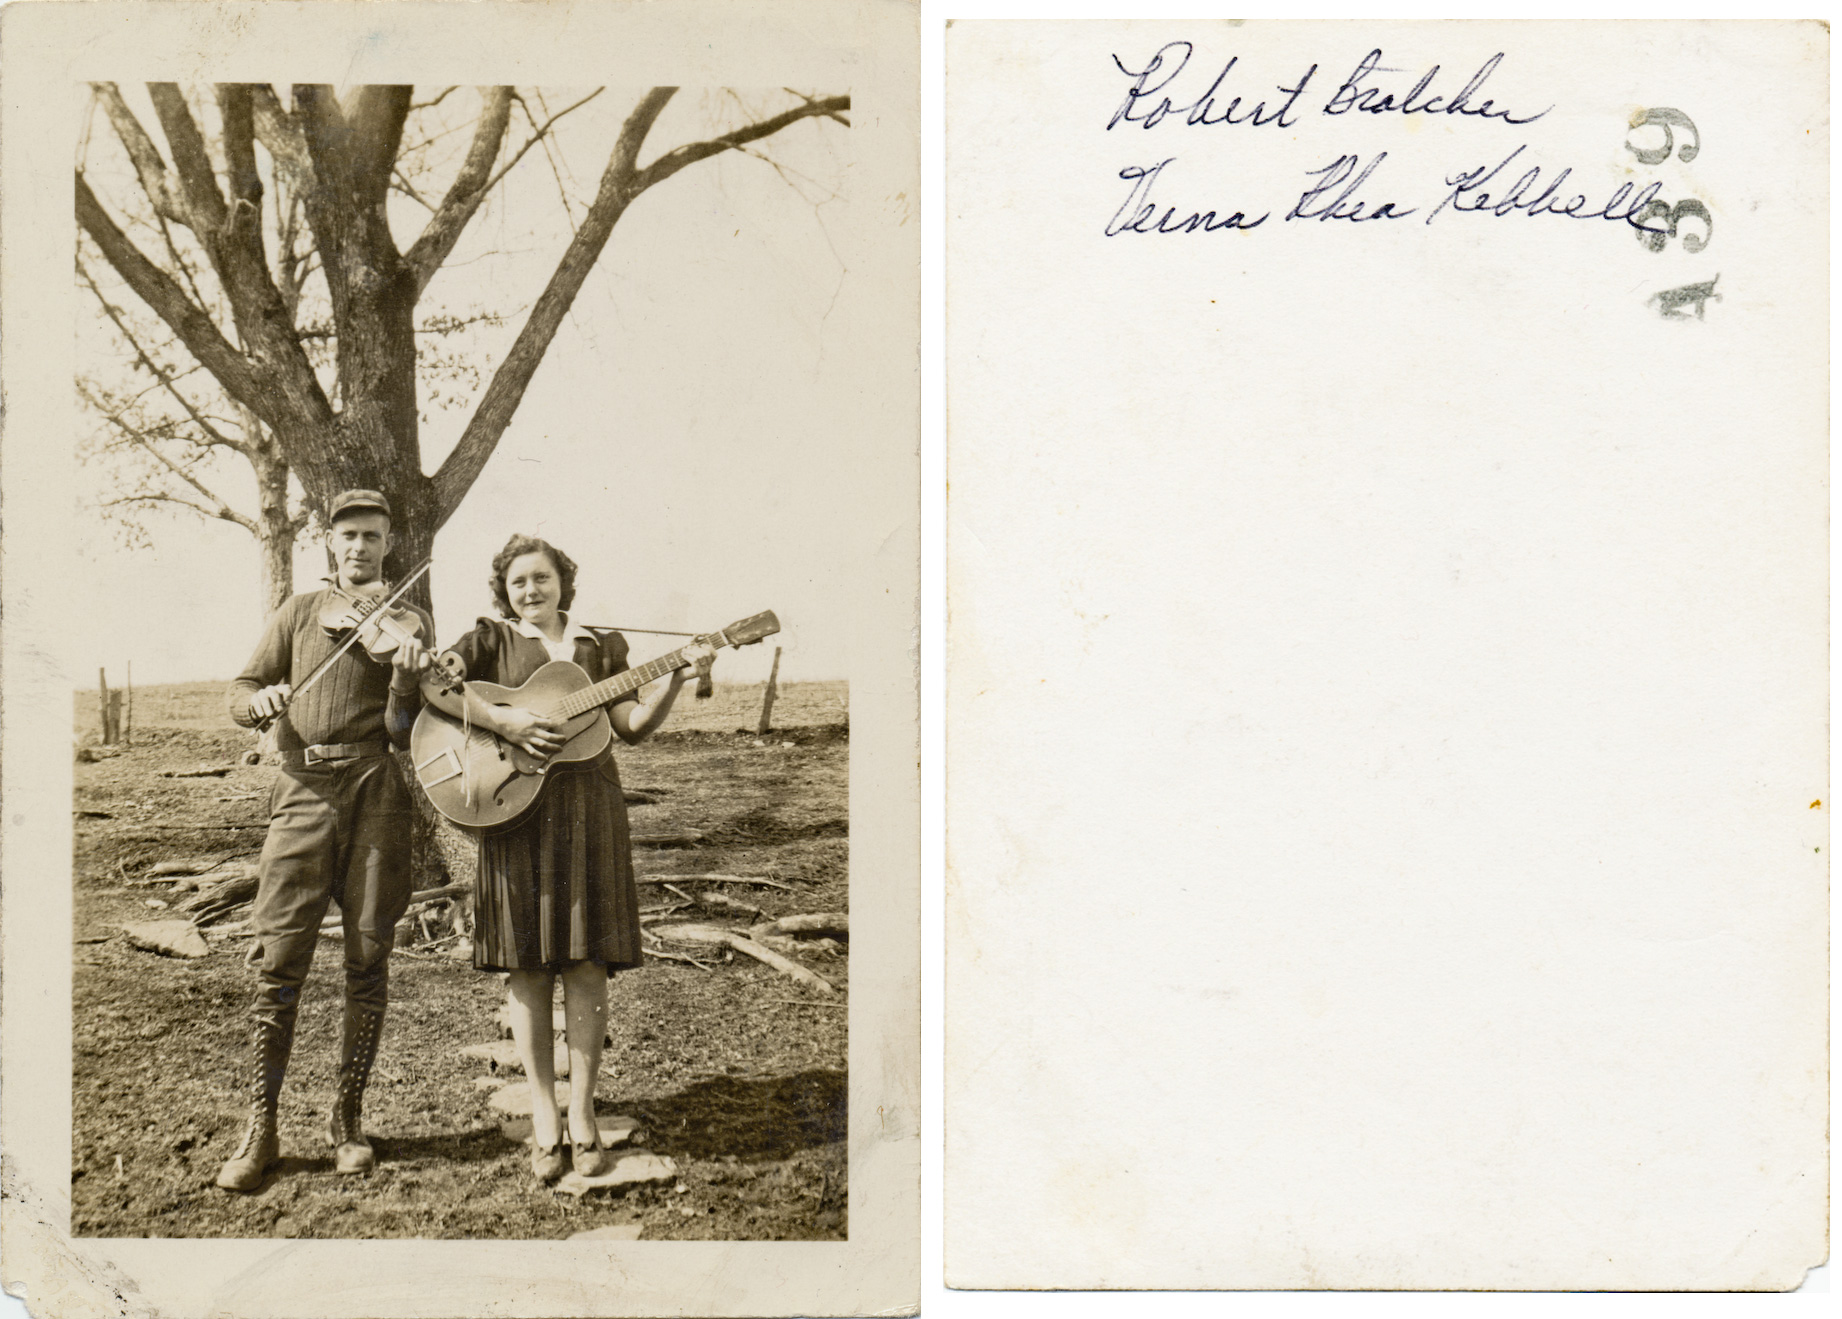 Robert Bratcher
Verna Rhea Kebbell
A39